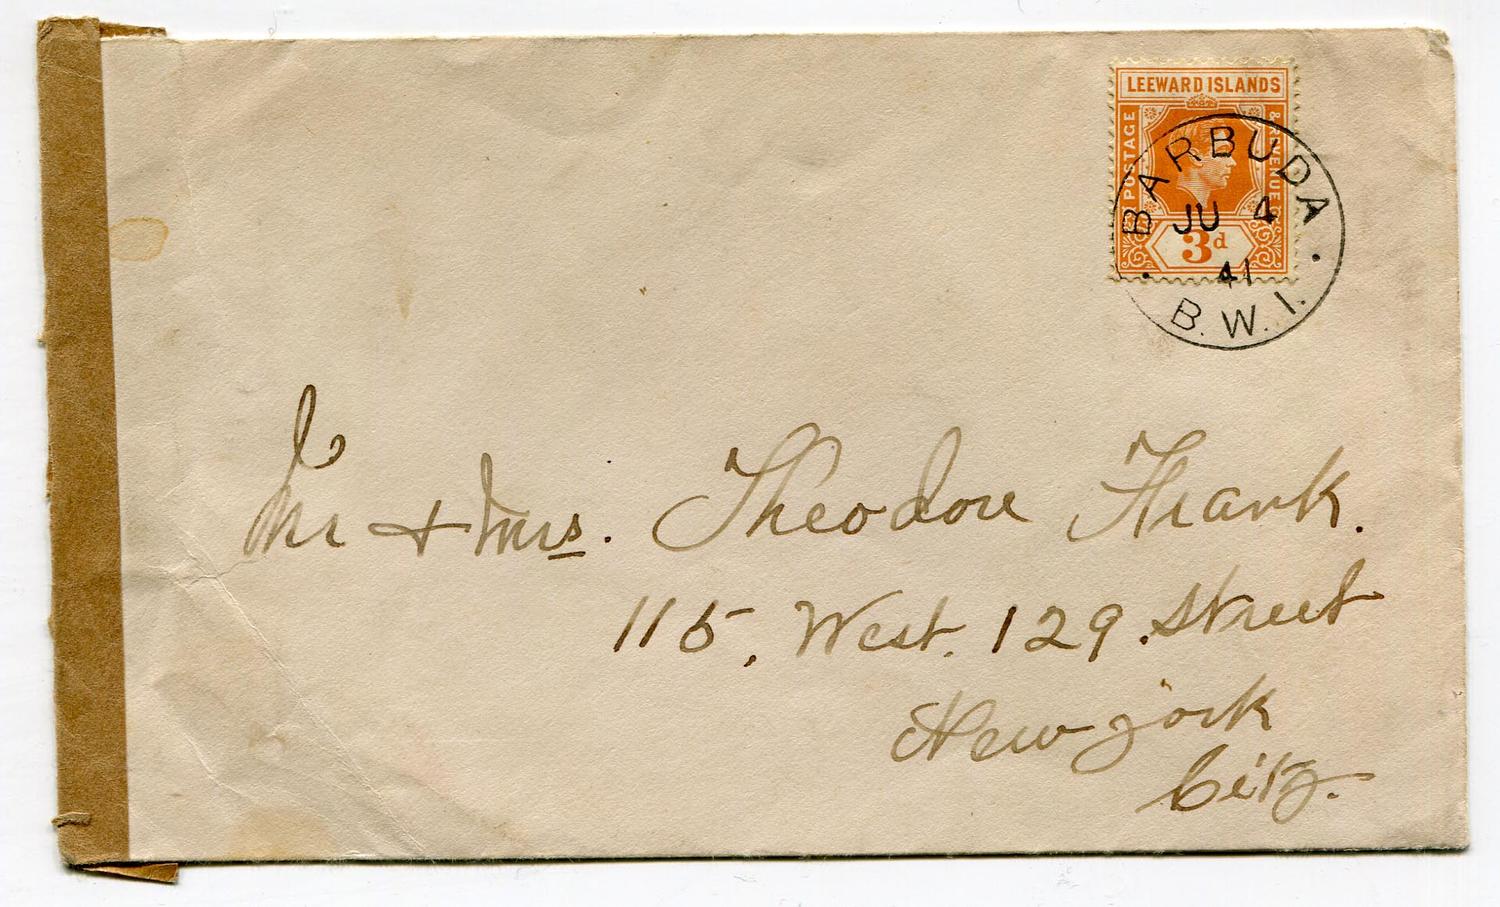 LEEWARD ISLANDS
POSTAGE
& REVENUE
3d
BARBUDA
JU 4
41
B.W.I.
Mr & Mrs. Theodore Frank.
115, West. 129. Street
New york
City.